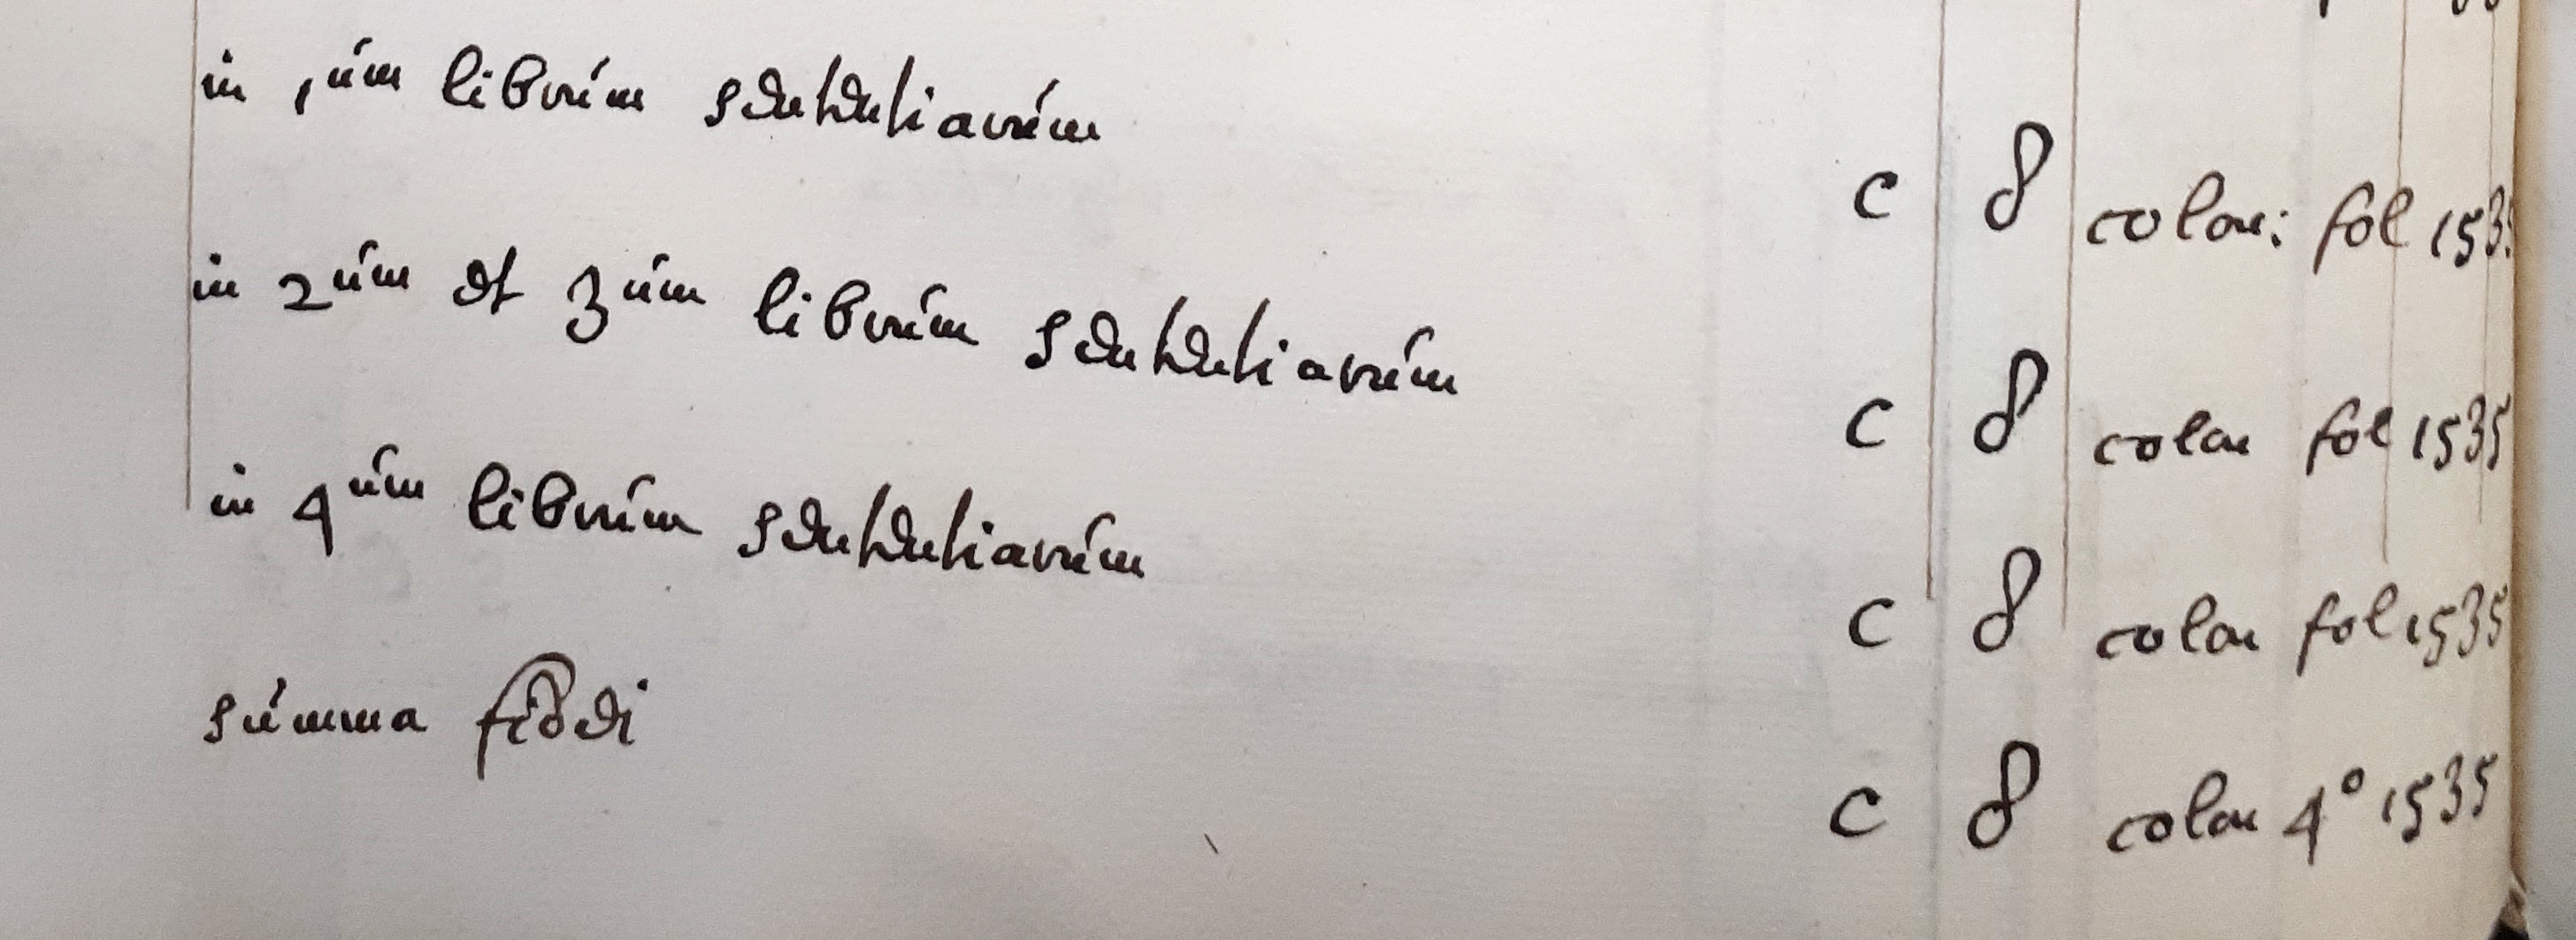 in 1um librum sententiarum
C 8 colon: fol 1535
in 2um et 3um librum sententiarum
C 8 colon fol 1535
in 4um librum sententiarum
C 8 colon fol 1535
summa fidei
C 8 colon 4° 1535